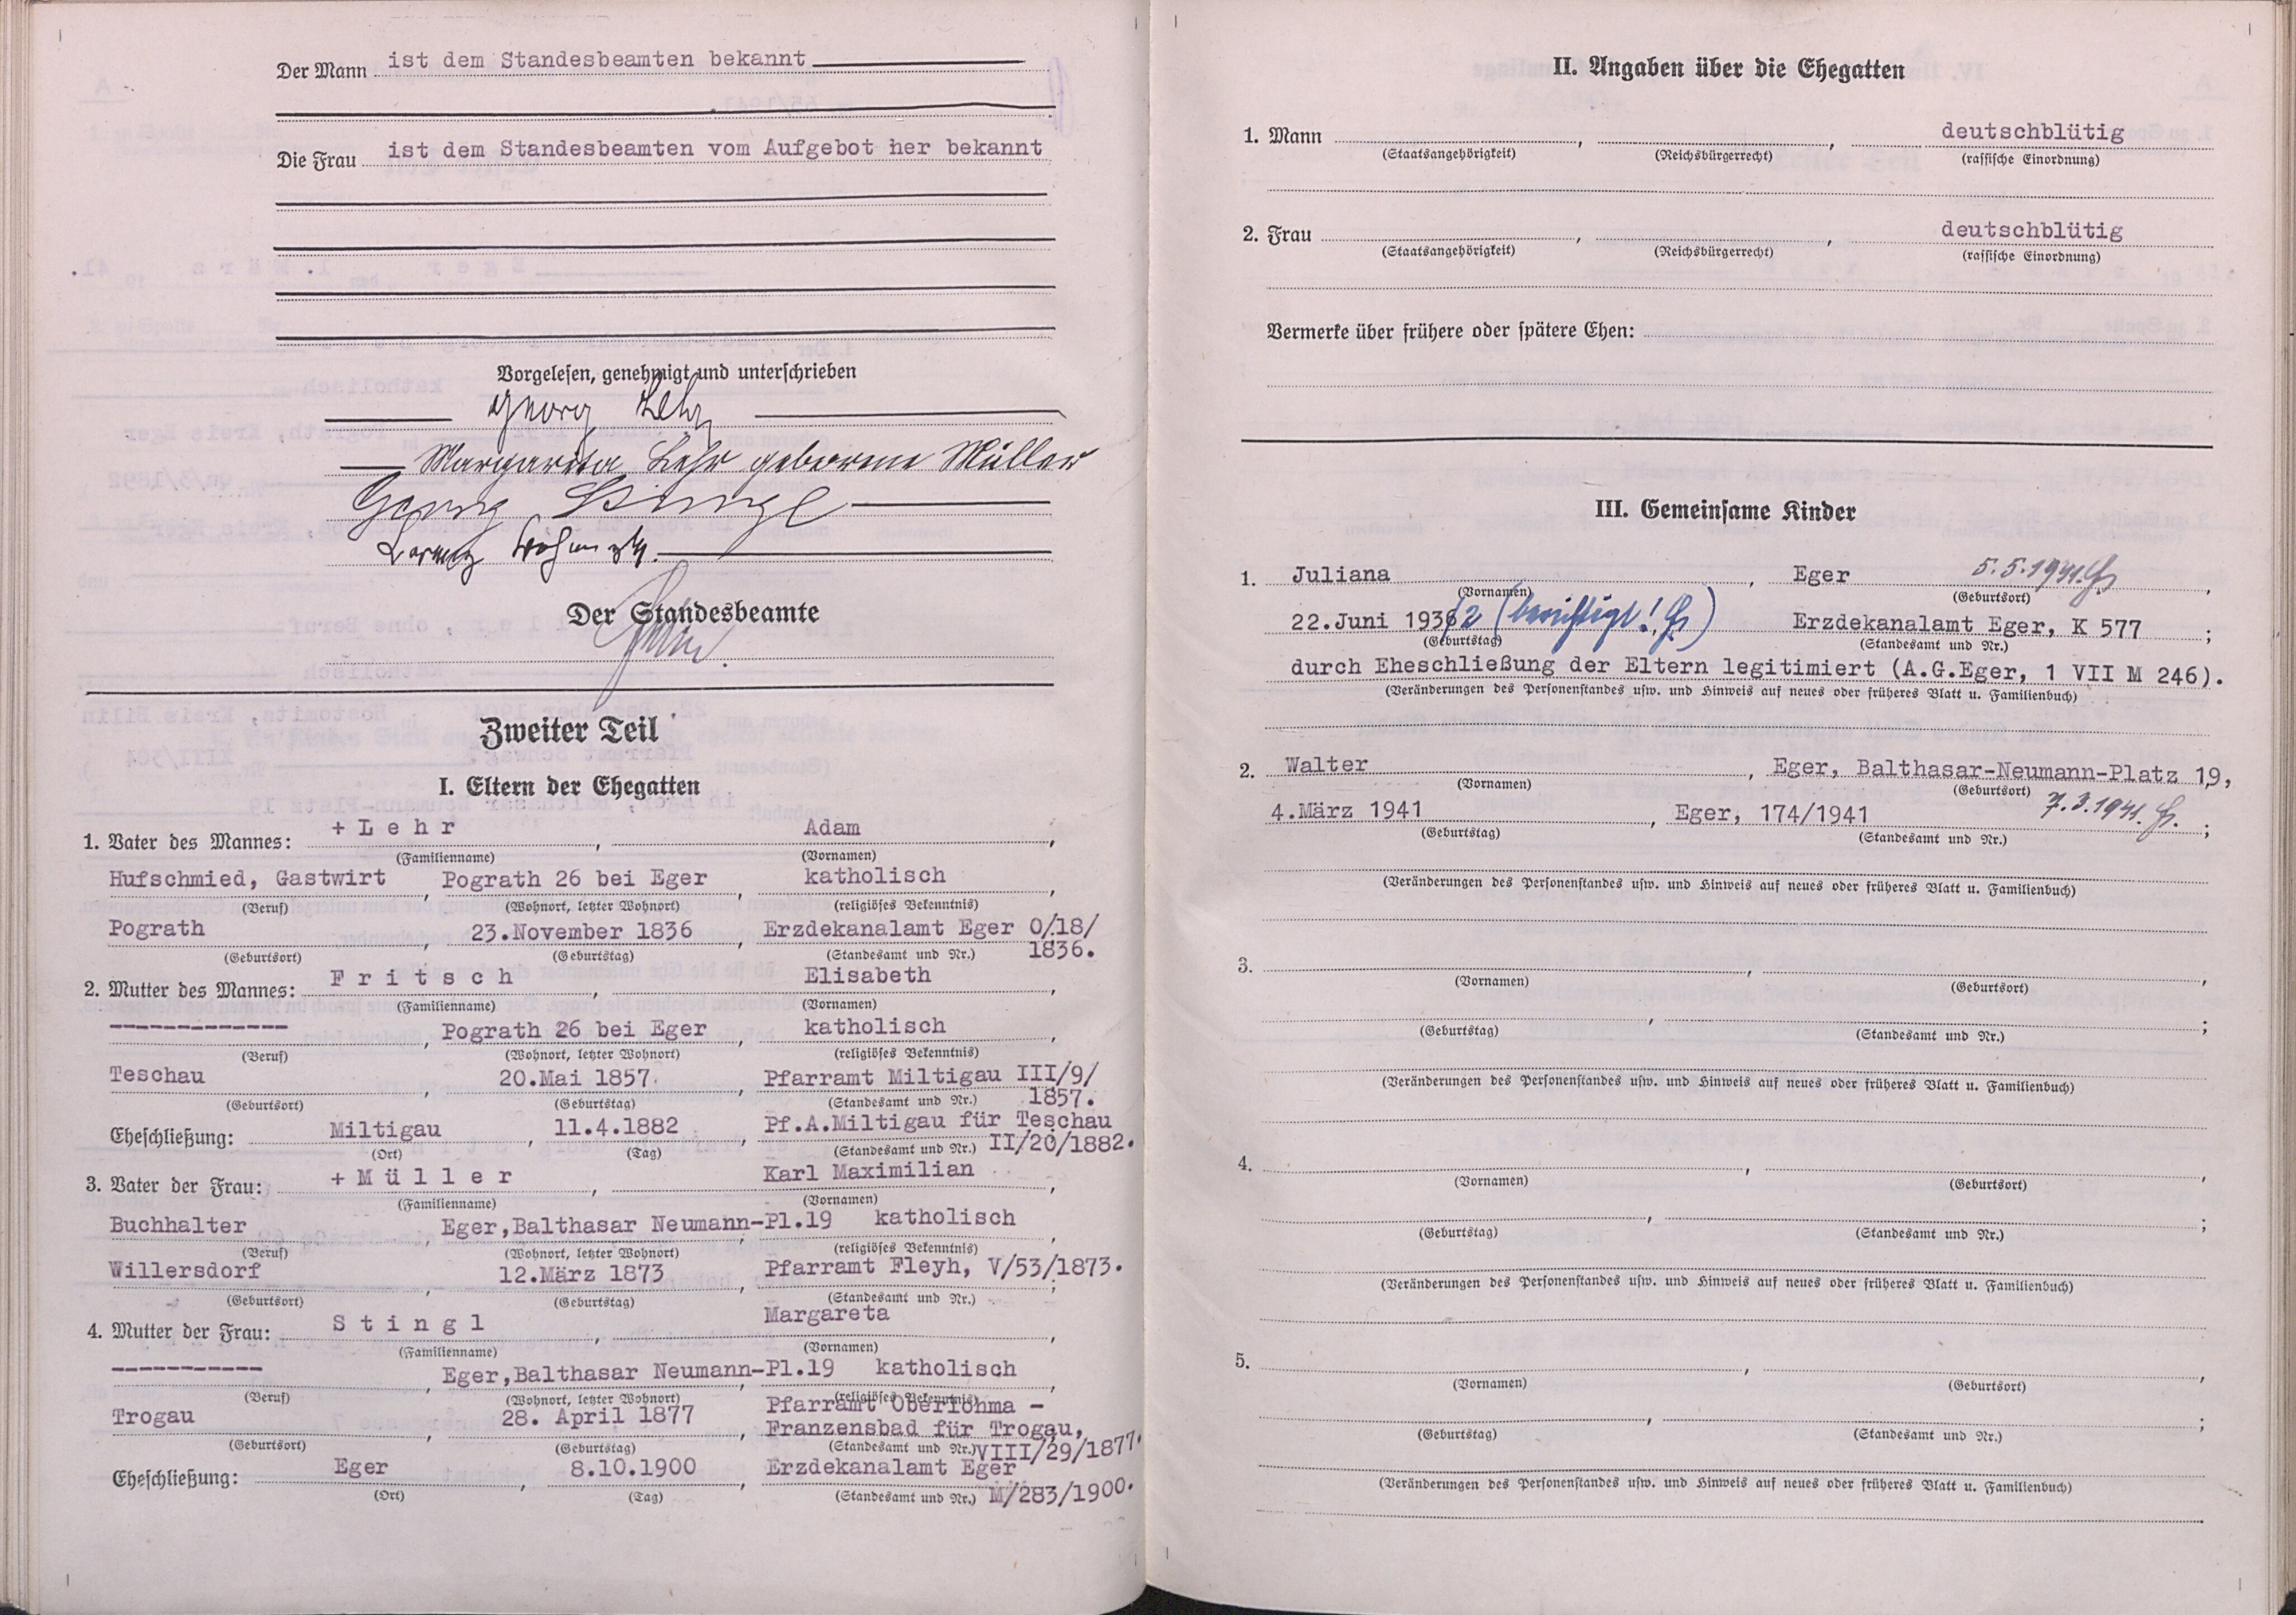 Der Mann ist dem Standesbeamten bekannt
Die Frau ist dem Standesbeamten vom Aufgebot her bekannt
Vorgelesen, genehmigt und unterschrieben
Georg Lehr
Margareta Lehr geborene Müller
Georg Stingl
Lorenz
Der Standesbeamte
Zweiter Teil
I. Eltern der Ehegatten
1. Vater des Mannes: + L e h r , Adam ,
(Familienname) (Vornamen)
Hufschmied, Gastwirt , Pograth 26 bei Eger , katholisch ,
(Beruf) (Wohnort, letzter Wohnort) (religiöses Bekenntnis)
Pograth , 23.November 1836 , Erzdekanalamt Eger O/18/
1836.
(Geburtsort) (Geburtstag) (Standesamt und Nr.)
2. Mutter des Mannes: F r i t s c h , Elisabeth ,
(Familienname) (Vornamen)
------------ , Pograth 26 bei Eger , katholisch ,
(Beruf) (Wohnort, letzter Wohnort) (religiöses Bekenntnis)
Teschau , 20.Mai 1857 , Pfarramt Miltigau III/9/
1857.
(Geburtsort) (Geburtstag) (Standesamt und Nr.)
Eheschließung: Miltigau , 11.4.1882 , Pf.A.Miltigau für Teschau
(Ort) (Tag) (Standesamt und Nr.) II/20/1882.
3. Vater der Frau: + M ü l l e r , Karl Maximilian ,
(Familienname) (Vornamen)
Buchhalter , Eger,Balthasar Neumann-Pl.19 katholisch ,
(Beruf) (Wohnort, letzter Wohnort) (religiöses Bekenntnis)
Willersdorf , 12.März 1873 , Pfarramt Fleyh, V/53/1873. ;
(Geburtsort) (Geburtstag) (Standesamt und Nr.)
4. Mutter der Frau: S t i n g l , Margareta ,
(Familienname) (Vornamen)
----------- , Eger,Balthasar Neumann-Pl.19 katholisch ,
(Beruf) (Wohnort, letzter Wohnort) (religiöses Bekenntnis)
Pfarramt Oberlohma -
Trogau , 28. April 1877 , Franzensbad für Trogau,
(Geburtsort) (Geburtstag) (Standesamt und Nr.) VIII/29/1877.
Eheschließung: Eger , 8.10.1900 , Erzdekanalamt Eger
(Ort) (Tag) (Standesamt und Nr.) M/283/1900.
II. Angaben über die Ehegatten
1. Mann , , deutschblütig
(Staatsangehörigkeit) (Reichsbürgerrecht) (rassische Einordnung)
2. Frau , , deutschblütig
(Staatsangehörigkeit) (Reichsbürgerrecht) (rassische Einordnung)
Vermerke über frühere oder spätere Ehen:
III. Gemeinsame Kinder
1. Juliana , Eger 5.5.1941. ,
(Vornamen) (Geburtsort)
22.Juni 1936/2 (berichtigt! ) Erzdekanalamt Eger, K 577 ;
(Geburtstag) (Standesamt und Nr.)
durch Eheschließung der Eltern legitimiert (A.G.Eger, 1 VII M 246).
(Veränderungen des Personenstandes usw. und Hinweis auf neues oder früheres Blatt u. Familienbuch)
2. Walter , Eger, Balthasar-Neumann-Platz 19,
(Vornamen) (Geburtsort)
4.März 1941 , Eger, 174/1941 7.3.1941. ;
(Geburtstag) (Standesamt und Nr.)
(Veränderungen des Personenstandes usw. und Hinweis auf neues oder früheres Blatt u. Familienbuch)
3. , ,
(Vornamen) (Geburtsort)
, ;
(Geburtstag) (Standesamt und Nr.)
(Veränderungen des Personenstandes usw. und Hinweis auf neues oder früheres Blatt u. Familienbuch)
4. , ,
(Vornamen) (Geburtsort)
, ;
(Geburtstag) (Standesamt und Nr.)
(Veränderungen des Personenstandes usw. und Hinweis auf neues oder früheres Blatt u. Familienbuch)
5. , ,
(Vornamen) (Geburtsort)
, ;
(Geburtstag) (Standesamt und Nr.)
(Veränderungen des Personenstandes usw. und Hinweis auf neues oder früheres Blatt u. Familienbuch)